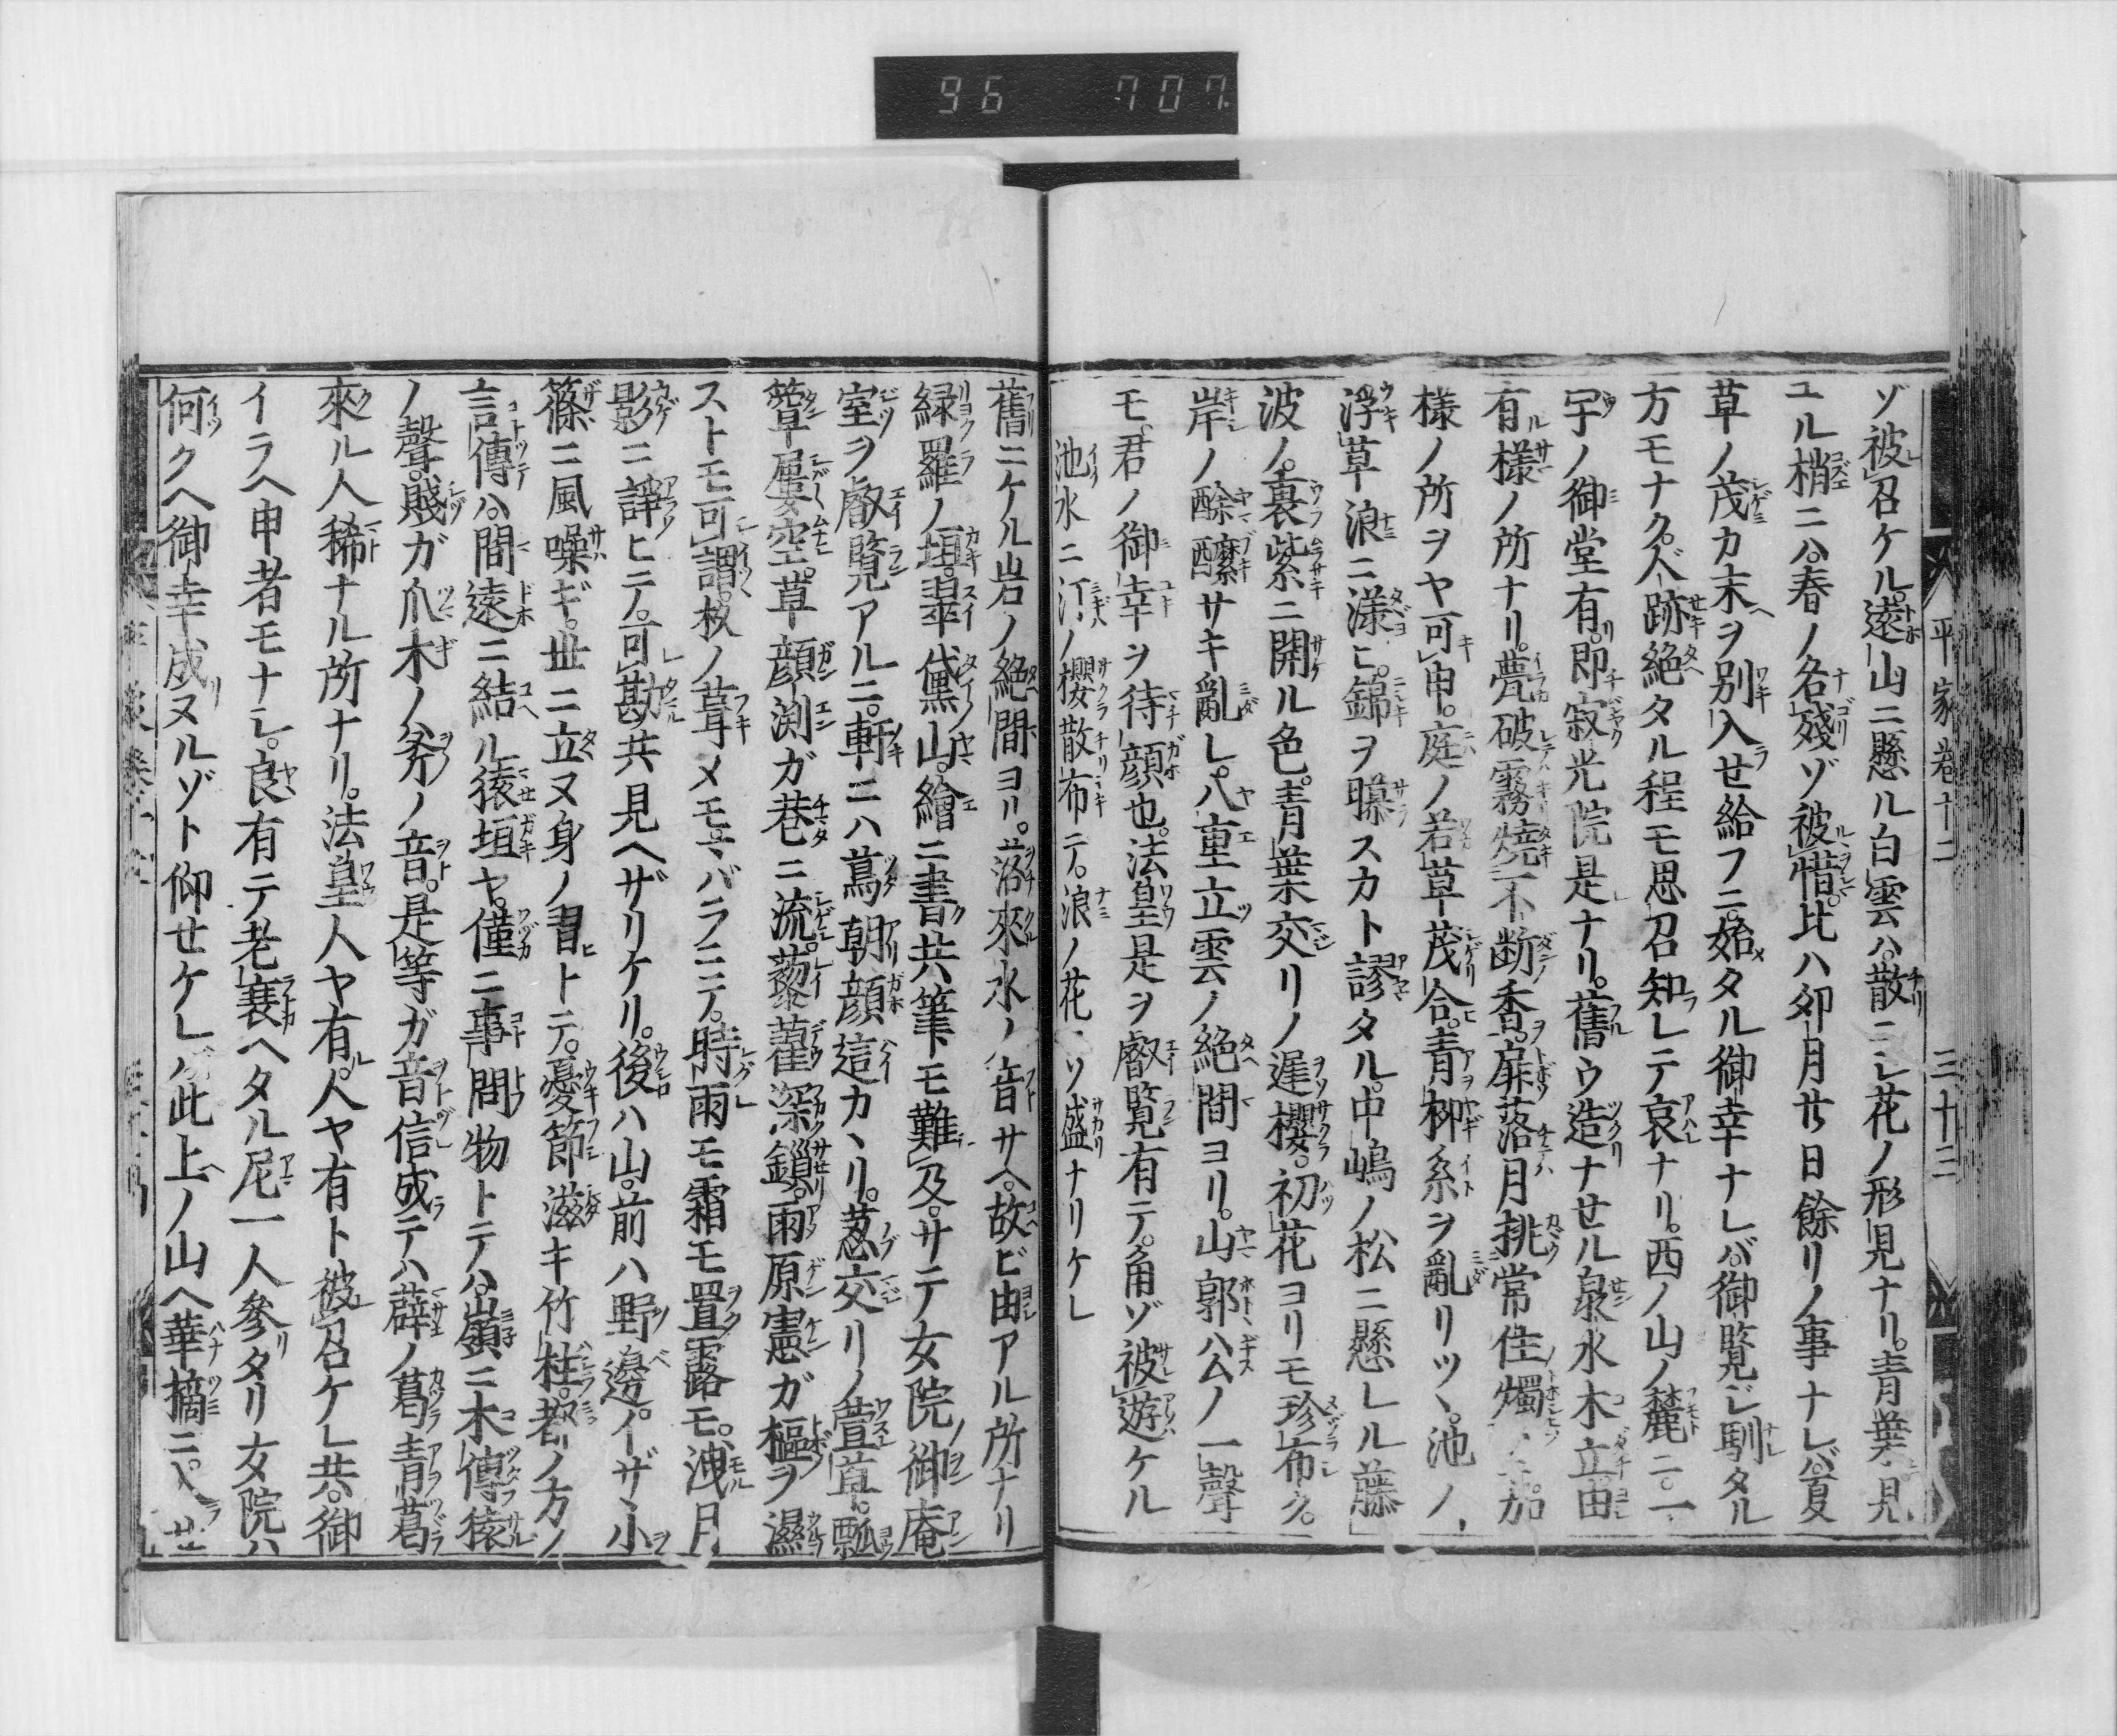 96 707
平家巻十二 三十三
ゾ被召ケル。遠山ニ懸ル白雲ハ。散ニシ花ノ形見ナリ。青葉ニ見
ユル梢ニハ。春ノ名殘ゾ被惜。比ハ卯月廿日餘リノ事ナレバ。夏
草ノ茂カ末ヲ別入セ給フニ。始タル御幸ナレバ。御覧ジ馴タル
方モナク。人跡絶タル程モ思召知レテ哀ナリ。西ノ山ノ麓ニ。一
宇ノ御堂有。即寂光院是ナリ。舊ウ造ナセル泉水木立由
有様ノ所ナリ。甍破霧焼不断香。扉落月挑常住燭ノ加
様ノ所ヲヤ可申。庭ノ若草茂合。青柳糸ヲ亂リツヽ。池ノ
浮草浪ニ漾ヒ。錦ヲ曝スカト謬タル。中嶋ノ松ニ懸レル藤
波ノ。裏紫ニ開ル色。青葉交リノ遅櫻。初花ヨリモ珍布ク。
岸ノ酴醾サキ亂レ。八重立雲ノ絶間ヨリ。山郭公ノ一聲
モ。君ノ御幸ヲ待顔也。法皇是ヲ叡覧有テ。角ゾ被遊ケル
池水ニ汀ノ櫻散布テ。浪ノ花コソ盛ナリケレ
舊ニケル岩ノ絶間ヨリ。落來水ノ音サヘ。故ビ由アル所ナリ
緑羅ノ垣。翠黛山。繪ニ書共筆モ難及。サテ女院御庵
室ヲ叡覧アルニ。軒ニハ蔦朝顔這カヽリ。荵交リノ萱草。瓢
箪屢空。草顔渕ガ巷ニ流。藜藋深鎖。雨原憲ガ樞ヲ濕
ストモ可謂。板ノ葺メモマバラニテ。時雨モ霜モ置露モ。洩月
影ニ諍ヒテ。可勘共見ヘザリケリ。後ハ山。前ハ野邊。イザヽ小
篠ニ風噪ギ。丗ニ立ヌ身ノ習トテ。憂節滋キ竹柱。都ノ方ノ
言傳ハ。間遠ニ結ル猿垣ヤ。僅ニ事問物トテハ。嶺ニ木傳猿
ノ聲。賤ガ爪木ノ斧ノ音。是等ガ音信成テハ薜ノ葛青葛
來ル人稀ナル所ナリ。法皇人ヤ有。人ヤ有ト被召ケレ共。御
イラヘ申者モナシ。良有テ老衰ヘタル尼一人參タリ女院ハ
何クヘ御幸成ヌルゾト仰セケレバ此上ノ山ヘ華摘ニ。入セ